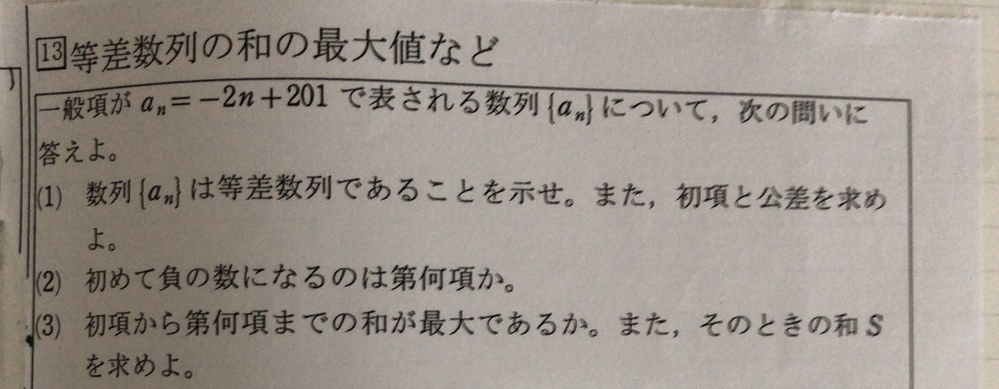 13 等差数列の和の最大値など
一般項が aₙ=−2n+201 で表される数列{aₙ}について，次の問いに
答えよ。
(1) 数列{aₙ}は等差数列であることを示せ。また，初項と公差を求め
よ。
(2) 初めて負の数になるのは第何項か。
(3) 初項から第何項までの和が最大であるか。また，そのときの和 S
を求めよ。